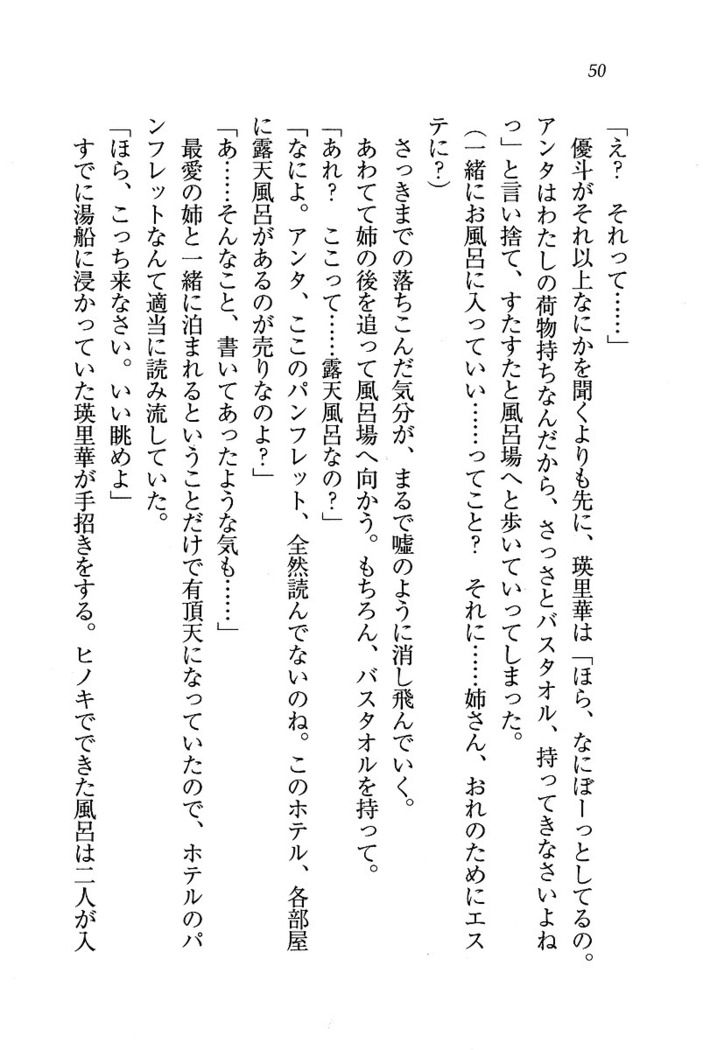 50
「え？　それって……」
　優斗がそれ以上なにかを聞くよりも先に、瑛里華は「ほら、なにぼーっとしてるの。
アンタはわたしの荷物持ちなんだから、さっさとバスタオル、持ってきなさいよね
っ」と言い捨て、すたすたと風呂場へと歩いていってしまった。
（一緒にお風呂に入っていい……ってこと？　それに……姉さん、おれのためにエス
テに？）
　さっきまでの落ちこんだ気分が、まるで嘘のように消し飛んでいく。
　あわてて姉の後を追って風呂場へ向かう。もちろん、バスタオルを持って。
「あれ？　ここって……露天風呂なの？」
「なによ。アンタ、ここのパンフレット、全然読んでないのね。このホテル、各部屋
に露天風呂があるのが売りなのよ？」
「あ……そんなこと、書いてあったような気も……」
　最愛の姉と一緒に泊まれるということだけで有頂天になっていたので、ホテルのパ
ンフレットなんて適当に読み流していた。
「ほら、こっち来なさい。いい眺めよ」
　すでに湯船に浸かっていた瑛里華が手招きをする。ヒノキでできた風呂は二人が入